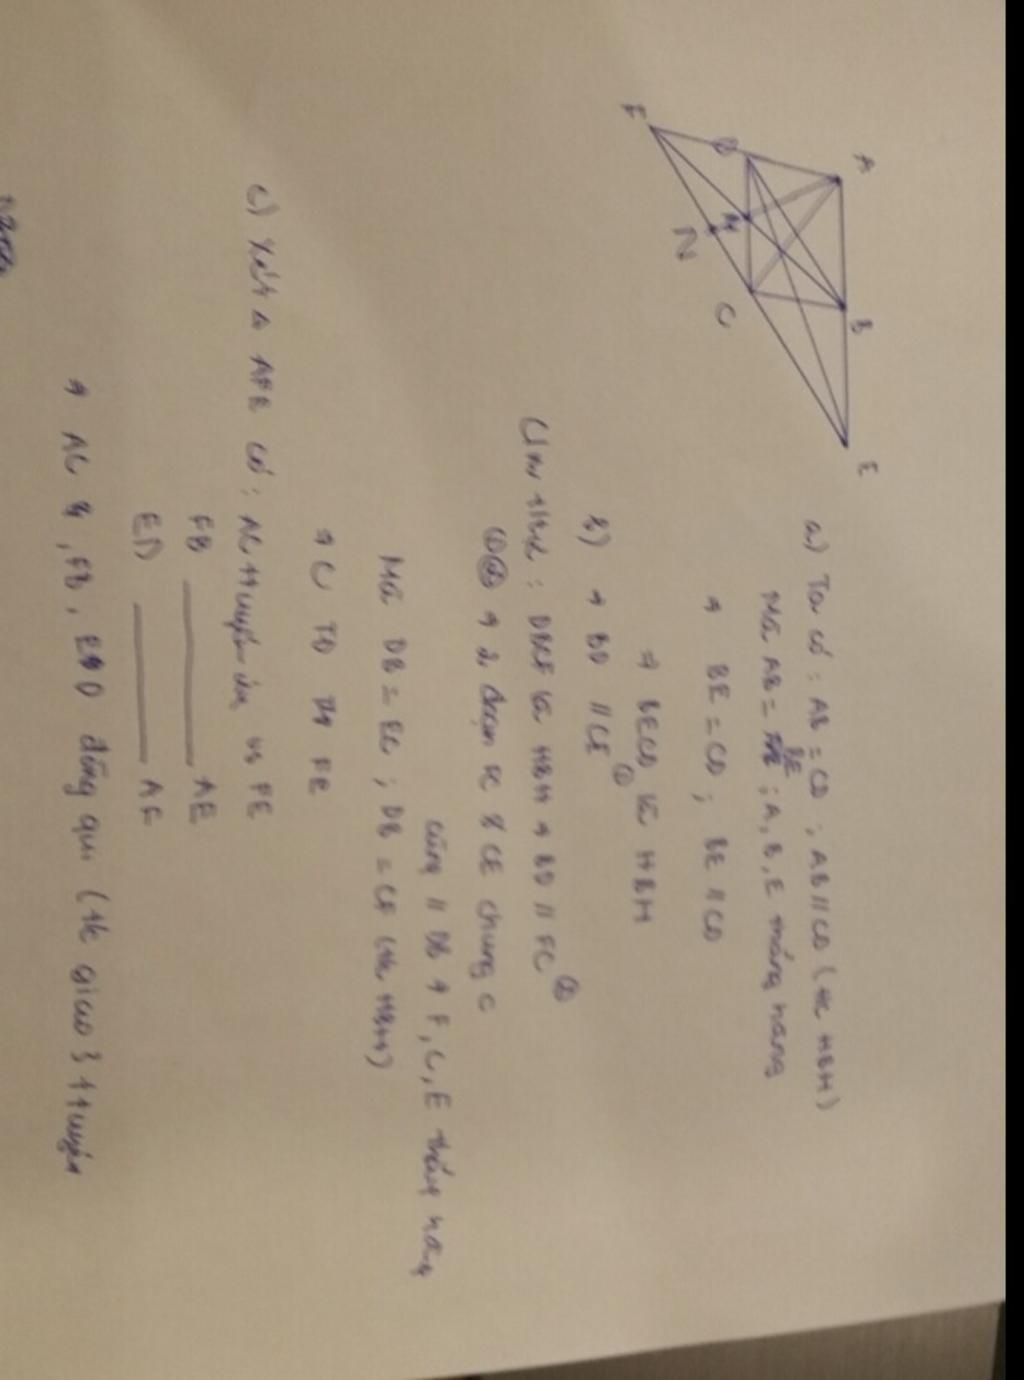 A
B
E
D
M
C
F
N
a) Ta có : AB = CD ; AB // CD (tc HBH)
Mà AB = BE ; A, B, E thẳng hàng
→ BE = CD ; BE // CD
→ BECD là HBH
b) → BD // CE ①
Cm tk : DBCF là HBH → BD // FC ②
①② → 2 đoạn FC & CE chung C
cùng // DB → F, C, E thẳng hàng
Mà DB = EC ; DB = CF (tc HBH)
→ C TĐ FE
c) Xét Δ AFE có : AC ttuyến ứng vs FE
FB ——— AE
ED ——— AF
→ AC &, FB, ED đồng qui (tc giao 3 ttuyến